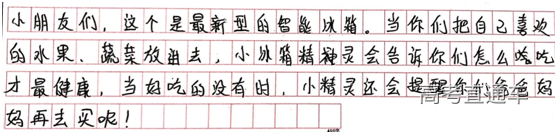 小朋友们，这个是最新型的智能冰箱。当你们把自己喜欢
的水果、蔬菜放进去，小冰箱精神灵会告诉你们怎么吃吃
才最健康，当好吃的没有时，小精灵还会提醒你们爸爸妈
妈再去买呢！
高考直通车